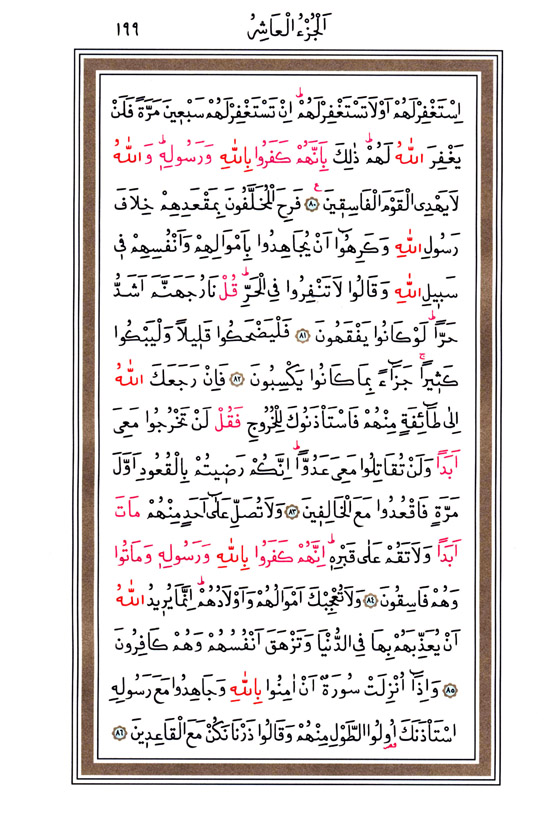 اَلْجُزْءُ الْعَاشِرُ
١٩٩
اِسْتَغْفِرْ لَهُمْ اَوْ لَا تَسْتَغْفِرْ لَهُمْۜ اِنْ تَسْتَغْفِرْ لَهُمْ سَبْع۪ينَ مَرَّةً فَلَنْ
يَغْفِرَ اللّٰهُ لَهُمْۜ ذٰلِكَ بِاَنَّهُمْ كَفَرُوا بِاللّٰهِ وَرَسُولِه۪ۜ وَاللّٰهُ
لَا يَهْدِي الْقَوْمَ الْفَاسِق۪ينَ۟ ﴿٨٠﴾ فَرِحَ الْمُخَلَّفُونَ بِمَقْعَدِهِمْ خِلَافَ
رَسُولِ اللّٰهِ وَكَرِهُٓوا اَنْ يُجَاهِدُوا بِاَمْوَالِهِمْ وَاَنْفُسِهِمْ ف۪ي
سَب۪يلِ اللّٰهِ وَقَالُوا لَا تَنْفِرُوا فِي الْحَرِّۜ قُلْ نَارُ جَهَنَّمَ اَشَدُّ
حَرًّاۜ لَوْ كَانُوا يَفْقَهُونَ ﴿٨١﴾ فَلْيَضْحَكُوا قَل۪يلًا وَلْيَبْكُوا
كَث۪يرًاۚ جَزَٓاءً بِمَا كَانُوا يَكْسِبُونَ ﴿٨٢﴾ فَاِنْ رَجَعَكَ اللّٰهُ
اِلٰى طَٓائِفَةٍ مِنْهُمْ فَاسْتَأْذَنُوكَ لِلْخُرُوجِ فَقُلْ لَنْ تَخْرُجُوا مَعِيَ
اَبَدًا وَلَنْ تُقَاتِلُوا مَعِيَ عَدُوًّاۜ اِنَّكُمْ رَض۪يتُمْ بِالْقُعُودِ اَوَّلَ
مَرَّةٍ فَاقْعُدُوا مَعَ الْخَالِف۪ينَ ﴿٨٣﴾ وَلَا تُصَلِّ عَلٰٓى اَحَدٍ مِنْهُمْ مَاتَ
اَبَدًا وَلَا تَقُمْ عَلٰى قَبْرِه۪ۜ اِنَّهُمْ كَفَرُوا بِاللّٰهِ وَرَسُولِه۪ وَمَاتُوا
وَهُمْ فَاسِقُونَ ﴿٨٤﴾ وَلَا تُعْجِبْكَ اَمْوَالُهُمْ وَاَوْلَادُهُمْۜ اِنَّمَا يُر۪يدُ اللّٰهُ
اَنْ يُعَذِّبَهُمْ بِهَا فِي الدُّنْيَا وَتَزْهَقَ اَنْفُسُهُمْ وَهُمْ كَافِرُونَ
﴿٨٥﴾ وَاِذَٓا اُنْزِلَتْ سُورَةٌ اَنْ اٰمِنُوا بِاللّٰهِ وَجَاهِدُوا مَعَ رَسُولِهِ
اسْتَأْذَنَكَ اُو۬لُوا الطَّوْلِ مِنْهُمْ وَقَالُوا ذَرْنَا نَكُنْ مَعَ الْقَاعِد۪ينَ ﴿٨٦﴾